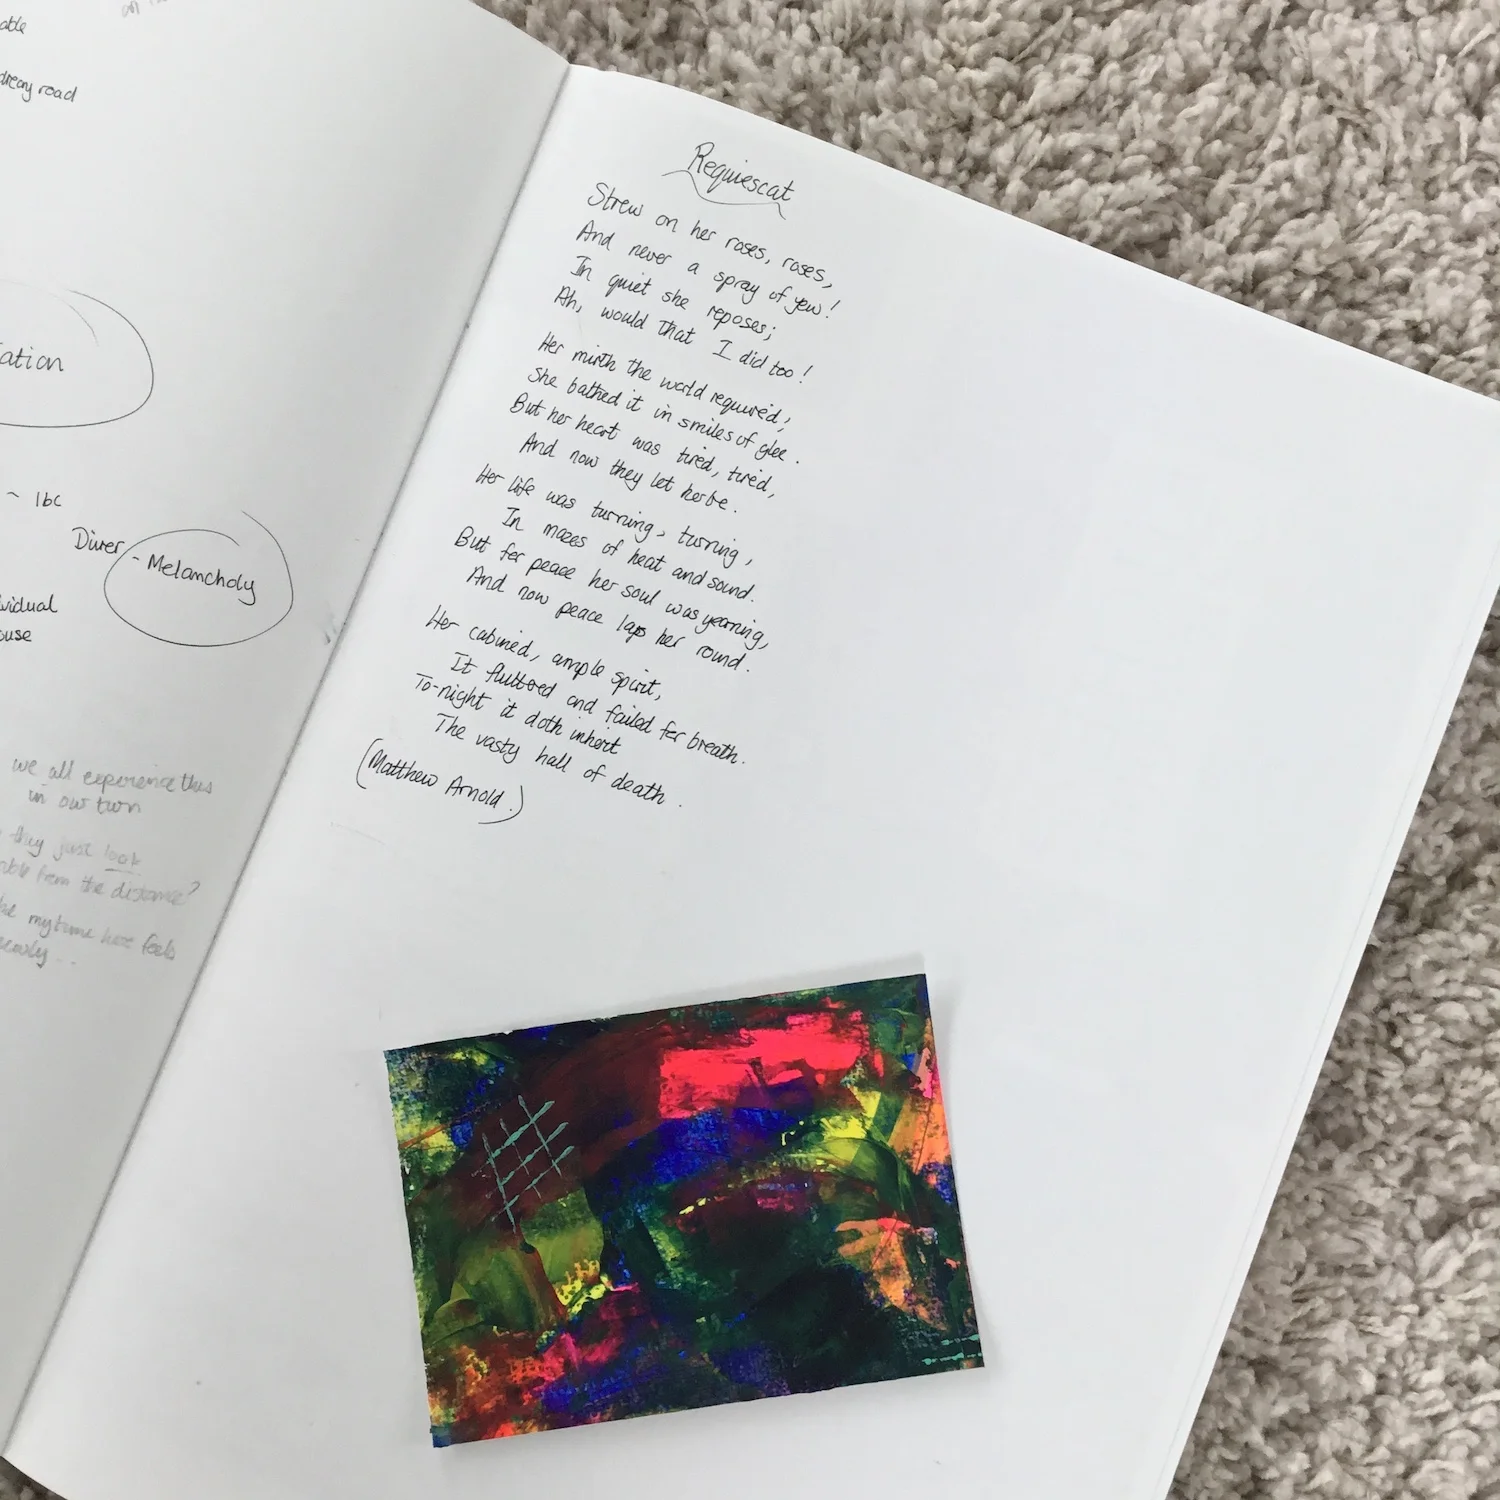 dreary road
Diver - Melancholy
we all experience this
in our turn
they just look
from the distance?
my time here feels
Requiescat
Strew on her roses, roses,
And never a spray of yew!
In quiet she reposes;
Ah, would that I did too!
Her mirth the world required;
She bathed it in smiles of glee.
But her heart was tired, tired,
And now they let her be.
Her life was turning, turning,
In mazes of heat and sound.
But for peace her soul was yearning,
And now peace laps her round.
Her cabined, ample spirit,
It fluttered and failed for breath.
To-night it doth inherit
The vasty hall of death.
(Matthew Arnold.)